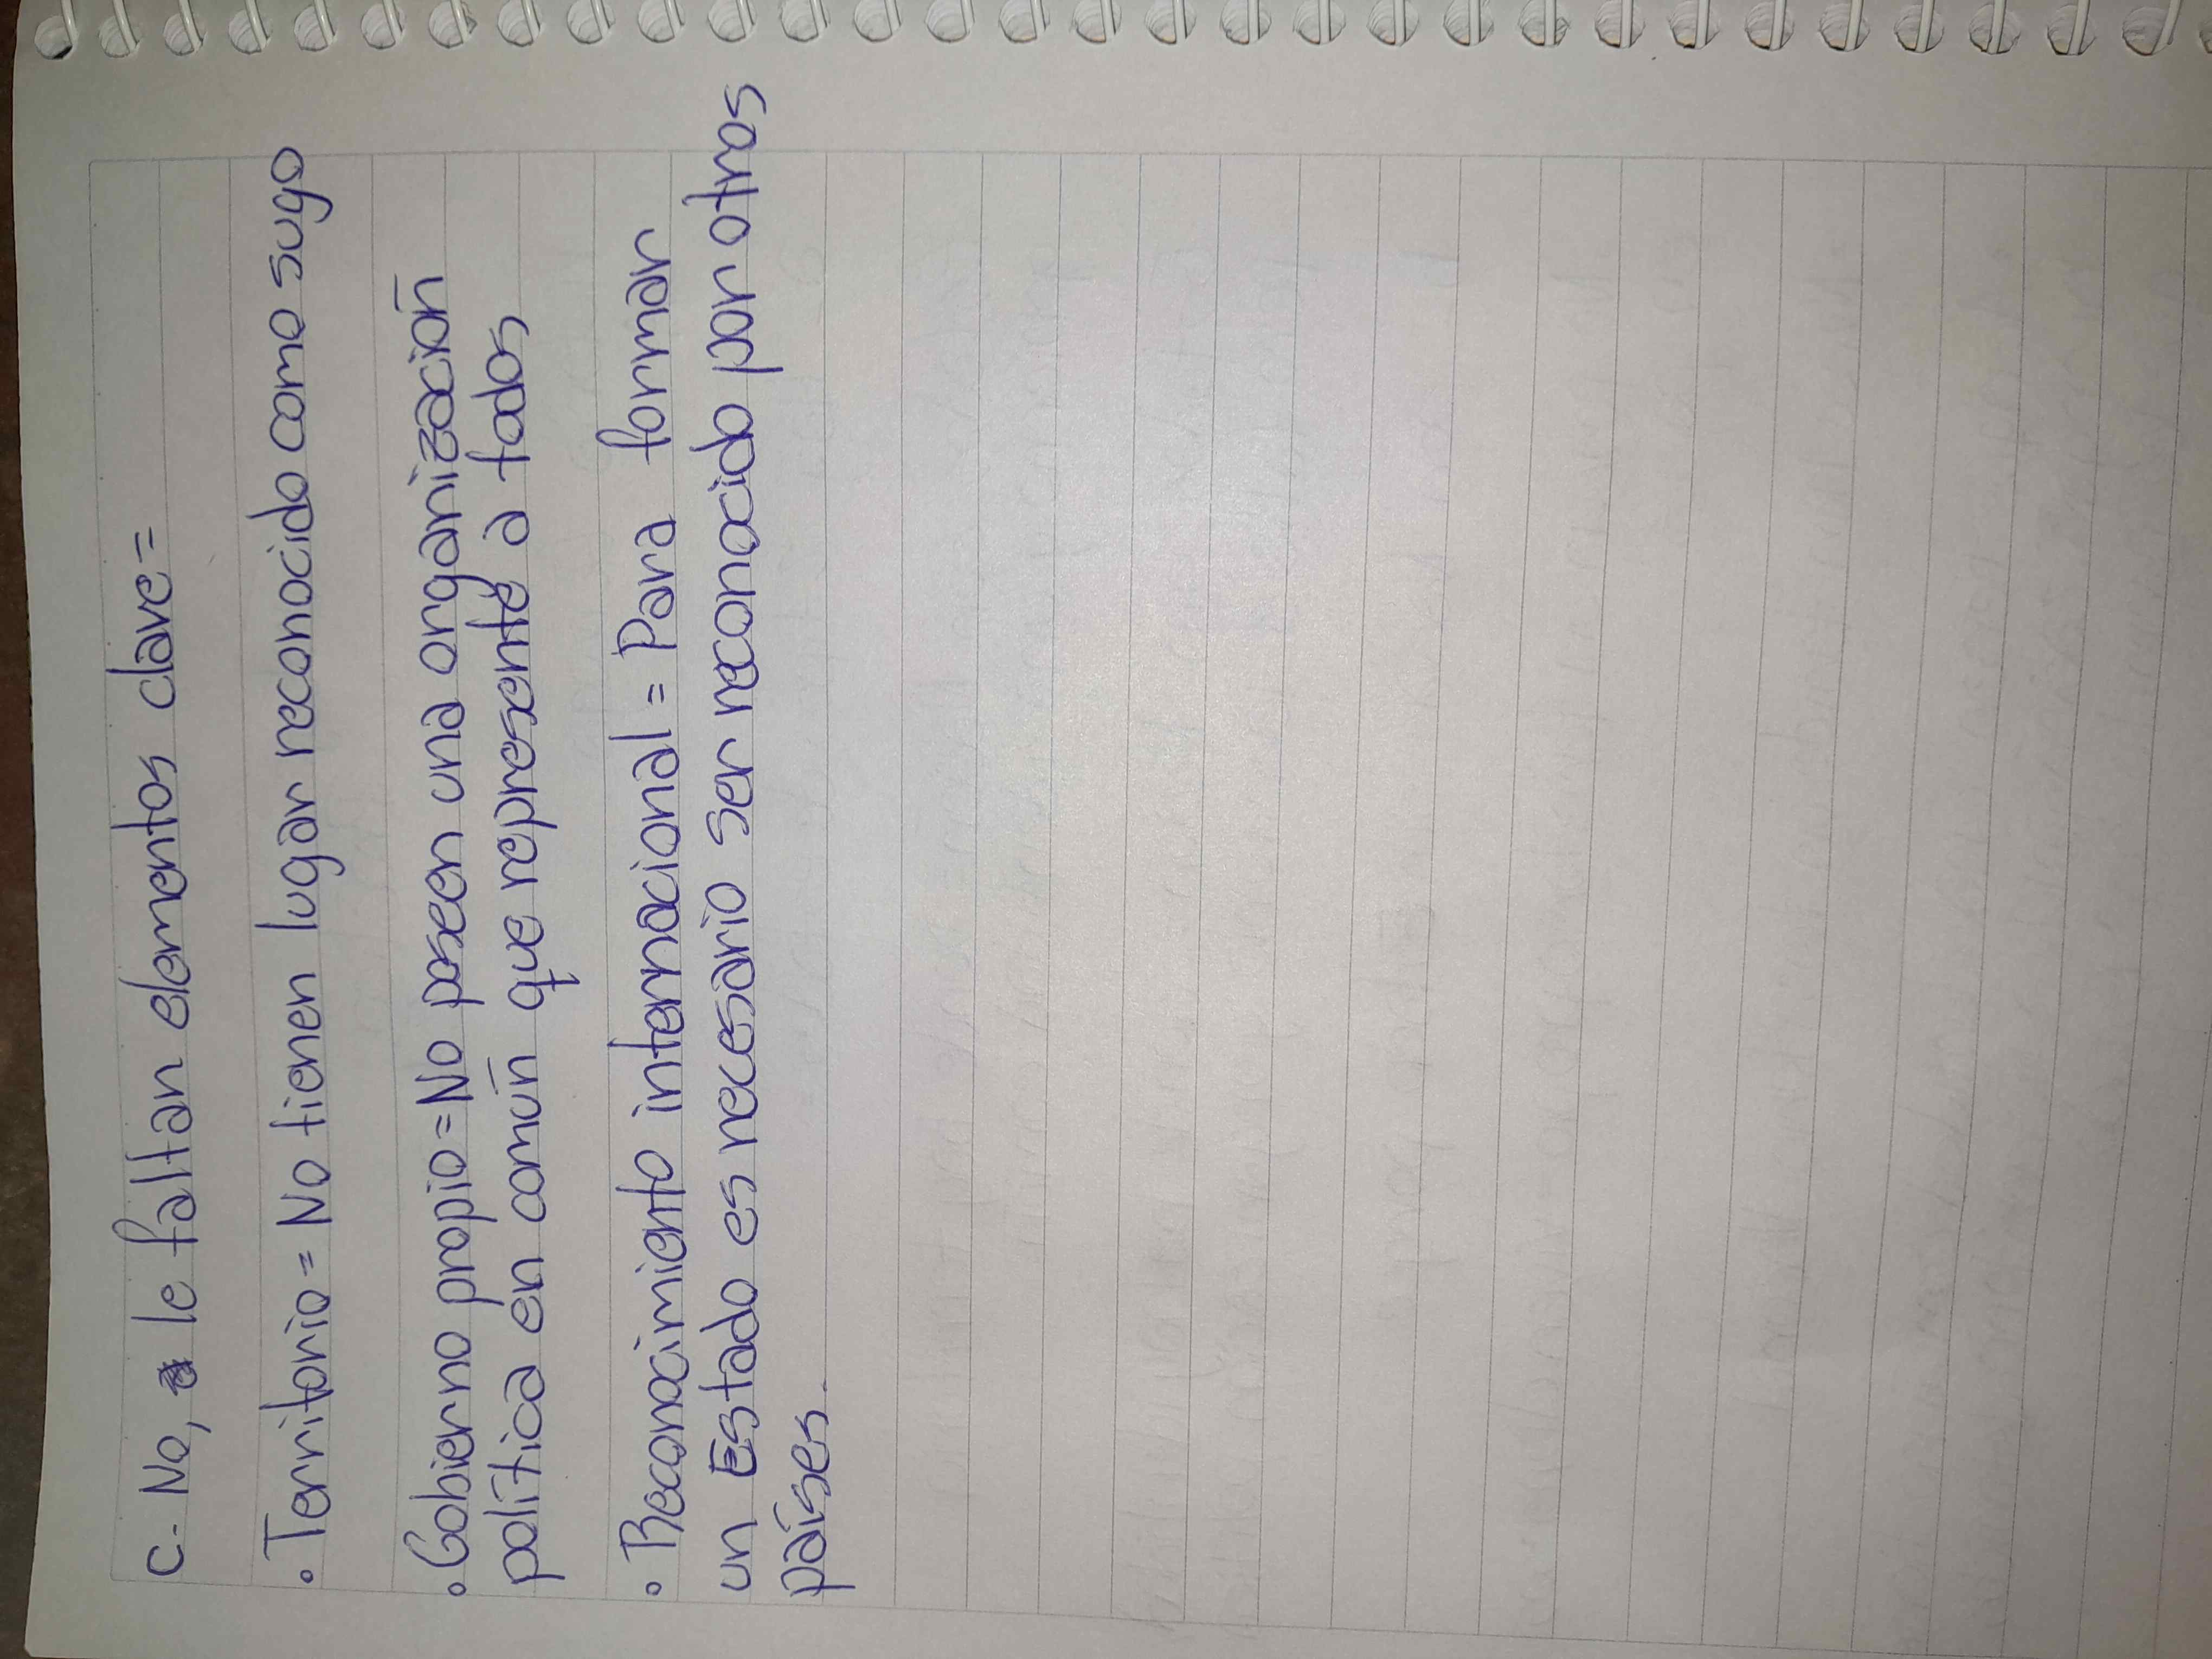 C- No, le faltan elementos clave=
• Territorio = No tienen lugar reconocido como suyo
• Gobierno propio = No poseen una organización
política en común que represente a todos
• Reconocimiento internacional = Para formar
un Estado es necesario ser reconocido por otros
países.